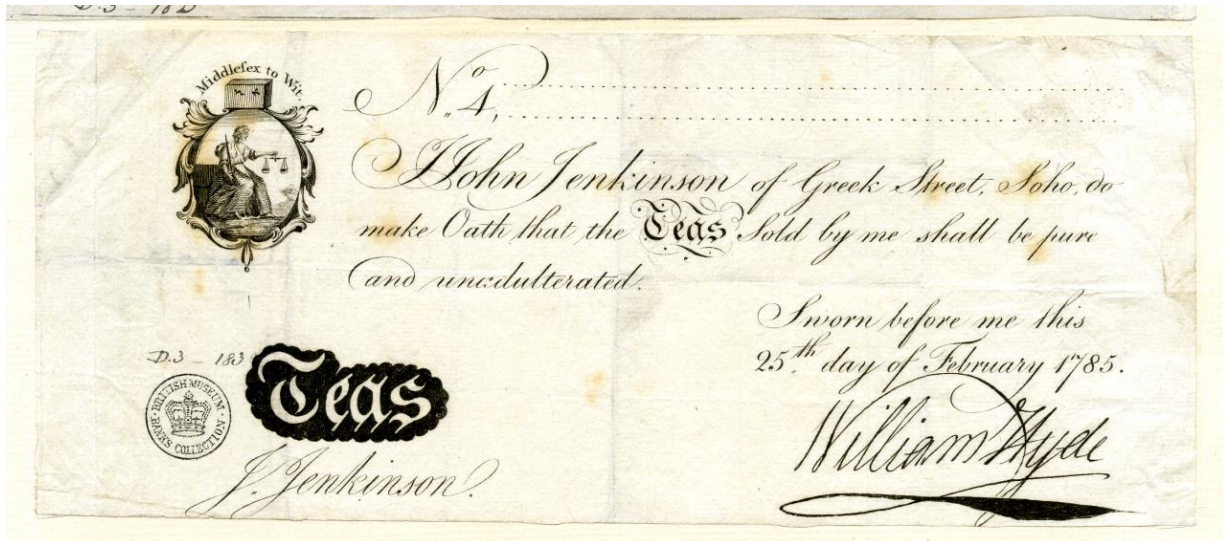 D.3 - 182
Middlesex to Wit.
No. 4,
I John Jenkinson of Greek Street, Soho, do
make Oath that the Teas Sold by me shall be pure
and unadulterated.
Sworn before me this
25th day of February 1785.
William Hyde
D.3 - 183
Teas
BRITISH MUSEUM
BANKS COLLECTION
J. Jenkinson.